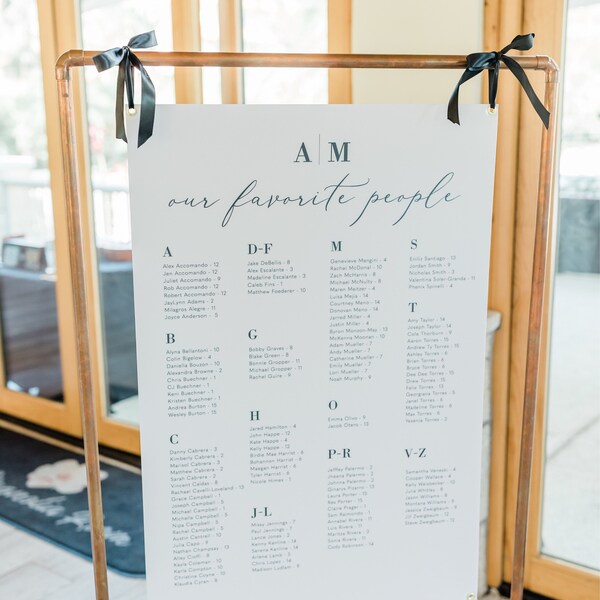 A | M
our favorite people
A
Alex Accomando - 12
Jen Accomando - 12
Juliet Accomando - 9
Rob Accomando - 12
Robert Accomando - 12
JazLynn Adams - 2
Milagros Alegre - 11
Joyce Anderson - 5
B
Alyna Bellantoni - 10
Colin Bigelow - 4
Danielle Bouzan - 10
Alexandra Browne - 2
Chris Buechner - 1
CJ Buechner - 1
Keri Buechner - 1
Kristen Buechner - 1
Andrea Burton - 10
Wesley Burton - 10
C
Danny Cabrera - 5
Kimberly Cabrera - 2
Marisol Cabrera - 5
Matthew Cabrera - 2
Sarah Cabrera - 2
Vincent Caldes - 8
Rachael Cavell-Loveland - 13
Grace Campbell - 1
Joseph Campbell - 5
Michael Campbell - 1
Michele Campbell - 5
Nina Campbell - 5
Rachel Campbell - 5
Austin Cantrell - 10
Nathan Champney - 13
Karla Compton - 10
Christina Coyne - 10
D-F
Jake DeBellis - 8
Alex Escalante - 3
Madeline Escalante - 3
Caleb Fins - 1
Matthew Foederer - 10
G
Bobby Graves - 8
Blake Green - 8
Bonnie Gropper - 11
Michael Gropper - 11
Rachel Guins - 9
H
Jared Hamilton - 4
John Happe - 12
Kate Happe - 4
Kelly Happe - 12
Birdie Mae Harrison - 6
Bohannon Harrison - 6
Meagan Harrison - 6
Tyler Harrison - 6
Nicole Hines - 1
J-L
Missy Jennings - 7
Paul Jennings - 7
Lance Jones - 2
Kenny Kerline - 14
Serena Kerline - 14
Arlene Laing - 5
Chris Lopez - 14
Madison Ludlam - 9
M
Genevieve Mangini - 4
Rachel McDonal - 10
Zach McHarris - 8
Michael McNulty - 8
Maren Meitzer - 4
Luisa Mejia - 14
Courtney Mero - 14
Donovan Mero - 14
Jarred Miller - 4
Justin Miller - 4
Byron Monson-May - 13
McKenna Moonan - 10
Adam Mueller - 7
Andy Mueller - 7
Catherine Mueller - 7
Emily Mueller - 7
Lori Mueller - 7
Noah Murphy - 9
O
Emma Olivo - 9
Jacob Otero - 13
P-R
Jeffrey Palermo - 2
Jessica Palermo - 2
Johnna Palermo - 2
Laura Porter - 10
Rex Porter - 10
Sam Raimondo - 1
Annabel Rivera - 11
Marisa Rivera - 11
Sonia Rivera - 11
Cody Robinson - 14
S
Emilio Santiago - 13
Jordan Smith - 8
Nicholas Smith - 2
Valentina Soler-Grands - 11
Phenix Spinelli - 4
T
Amy Taylor - 14
Joseph Taylor - 14
Cole Thorburn - 9
Aaron Torres - 10
Andrew Ty Torres - 10
Ashley Torres - 6
Brian Torres - 6
Bryce Torres - 6
Dee Dee Torres - 10
Drew Torres - 10
Felix Torres - 10
Georgiana Torres - 5
Janet Torres - 6
Madeline Torres - 6
Max Torres - 6
Noel Torres - 6
V-Z
Samantha Venezia - 4
Cooper Wallace - 8
Kelly Weckesser - 10
Jason Williams - 8
Montana Williams - 9